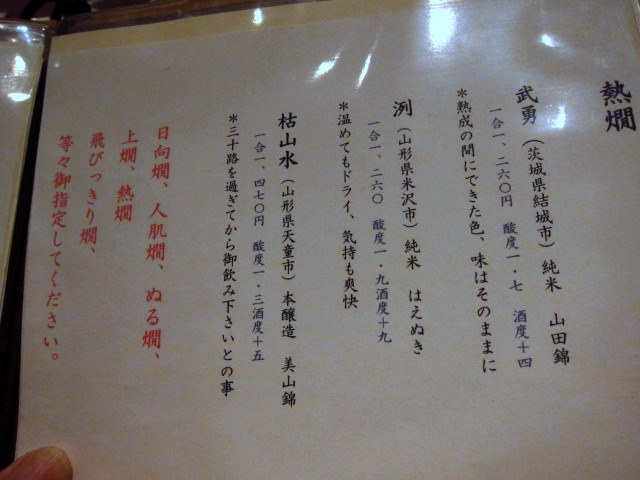 熱燗
武勇（茨城県結城市）純米 山田錦
一合一、二六〇円 酸度一・七 酒度＋四
＊熟成の間にできた色、味はそのままに
洌（山形県米沢市）純米 はえぬき
一合一、二六〇 酸度一・九酒度＋九
＊温めてもドライ、気持も爽快
枯山水（山形県天童市）本醸造 美山錦
一合一、四七〇円 酸度一・三酒度＋五
＊三十路を過ぎてから御飲み下さいとの事
日向燗、人肌燗、ぬる燗、
上燗、熱燗
飛びっきり燗、
等々御指定してください。